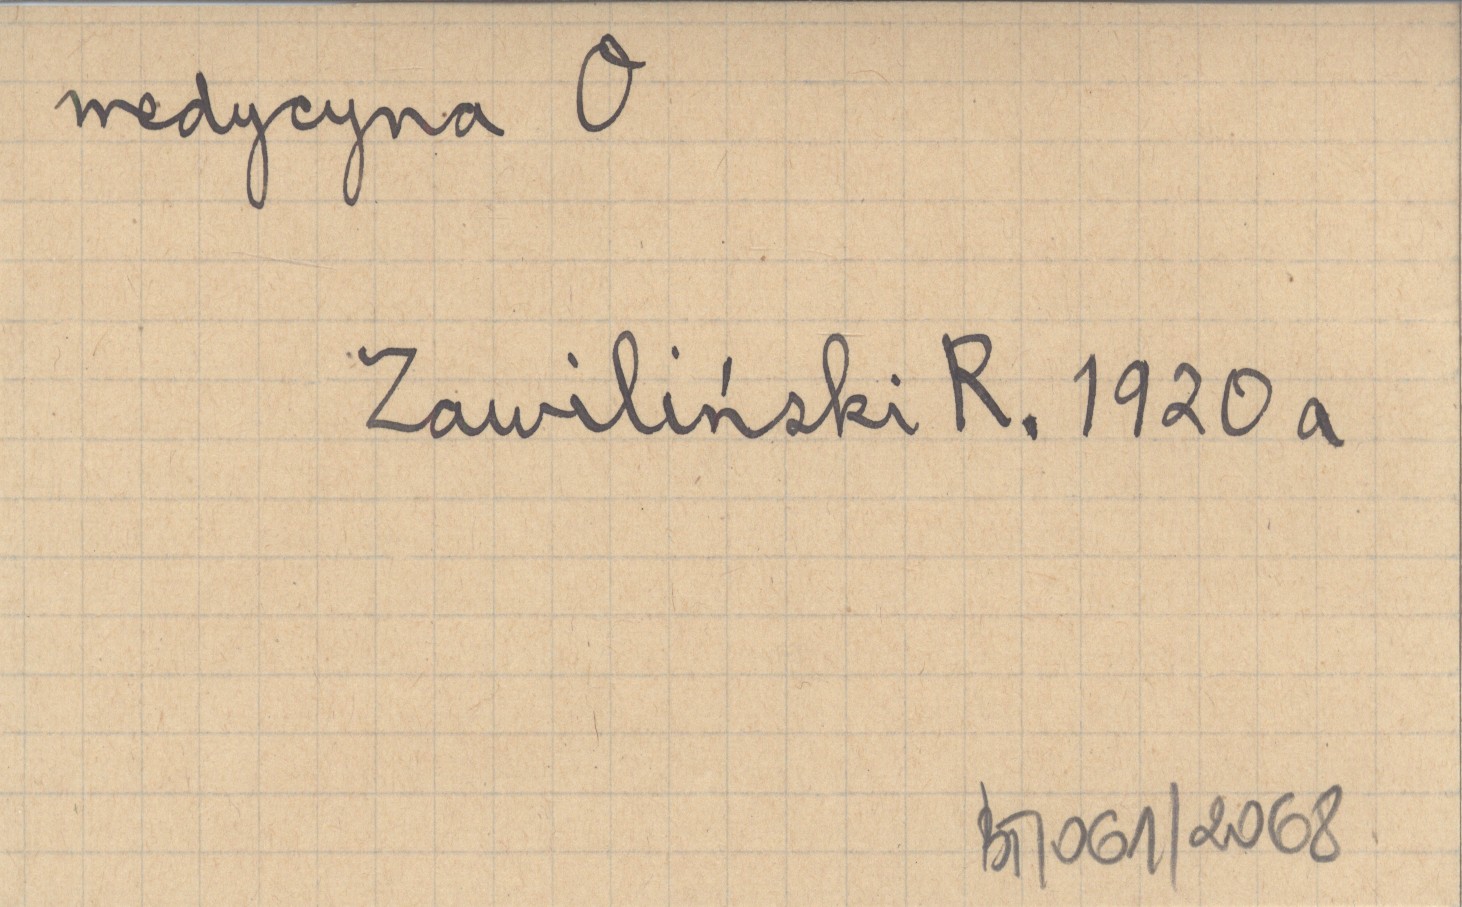 medycyna O
Zawiliński R. 1920 a
BT/061/2068